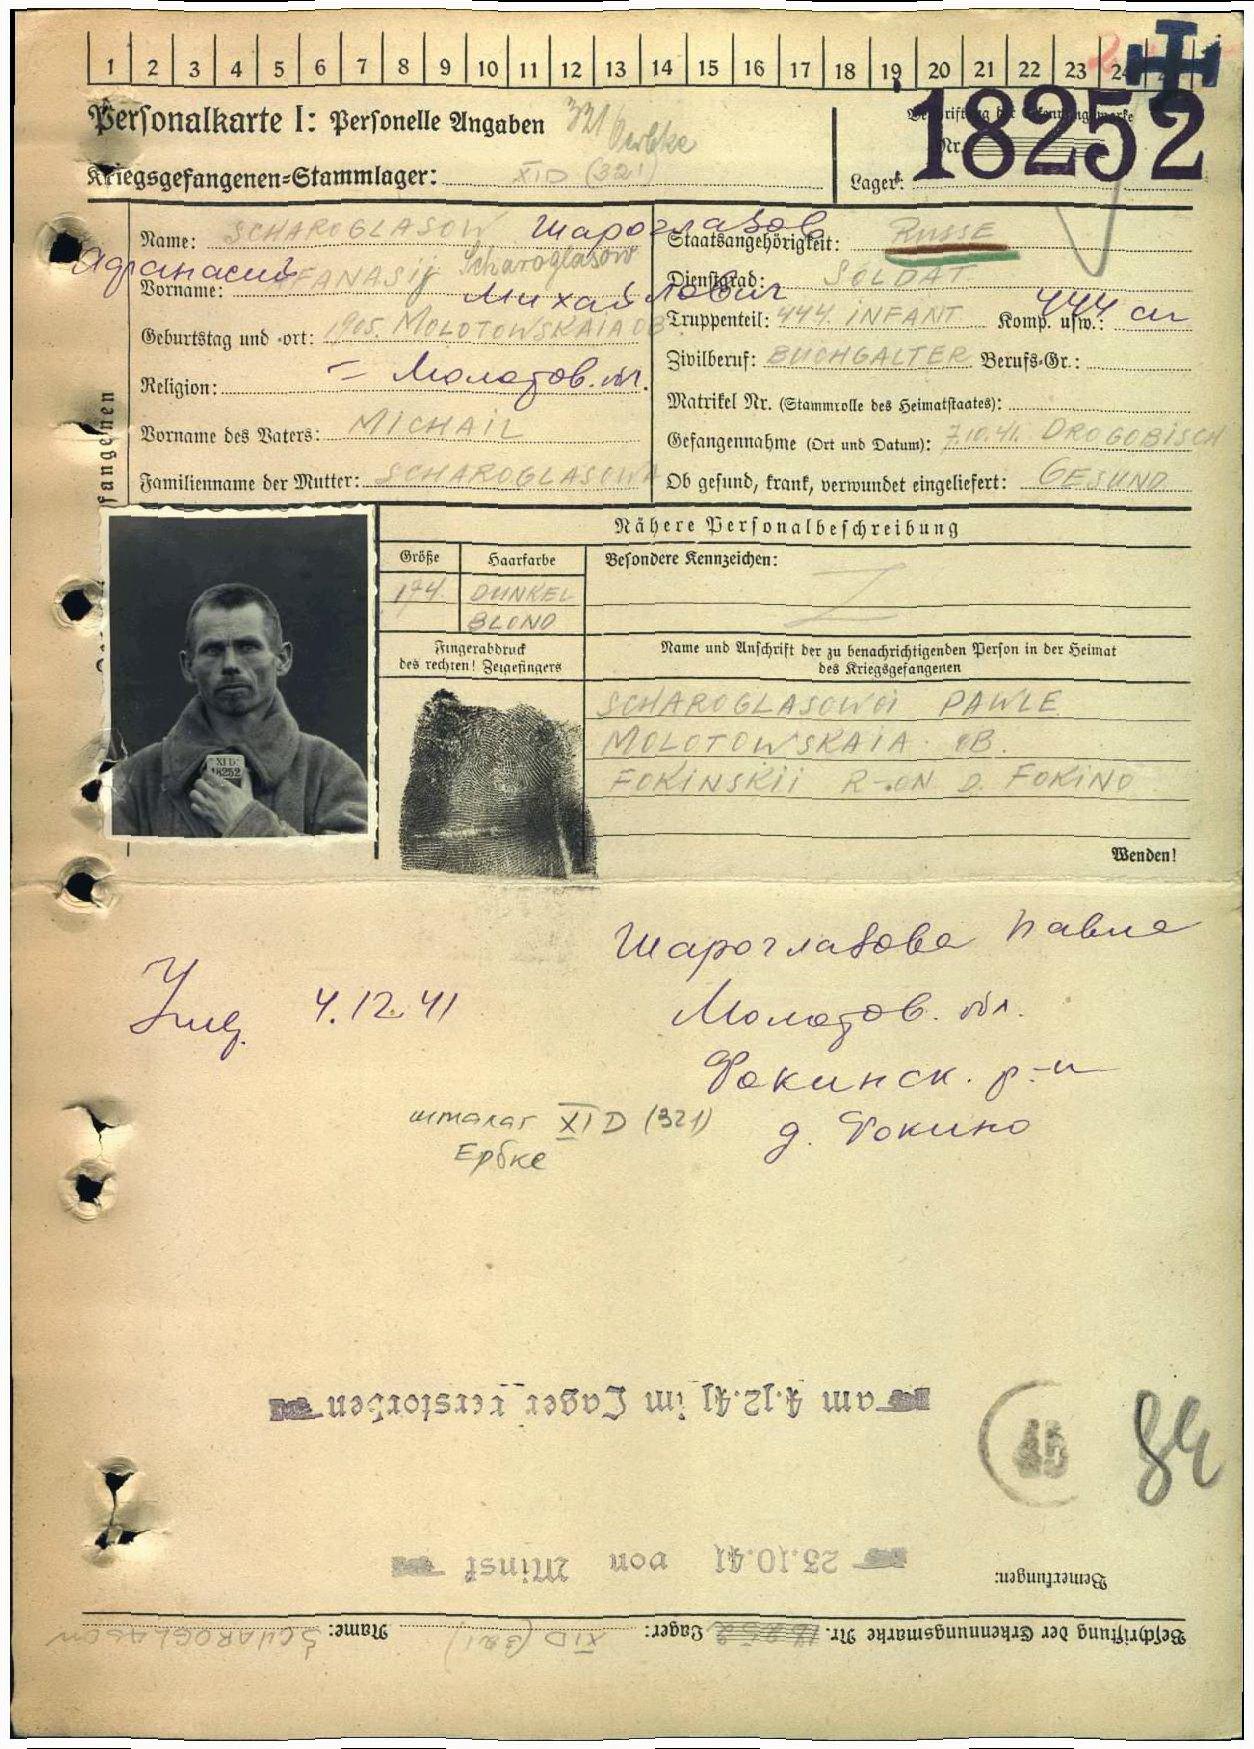 1 2 3 4 5 6 7 8 9 10 11 12 13 14 15 16 17 18 19 20 21 22 23 24
Personalkarte I: Personelle Angaben 321
Kriegsgefangenen-Stammlager: XI D (321)
Beschriftung der Erkennungsmarke
Nr. 18252
Lager:
Name: SCHAROGLASOW Шароглазов
Scharoglasow
Афанасий
Vorname: AFANASIJ Михайлович
Geburtstag und -ort: 1905. MOLOTOWSKAIA OB
Religion: = Молотов. обл.
Vorname des Vaters: MICHAIL
Familienname der Mutter: SCHAROGLASOWA
Staatsangehörigkeit: RUSSE
Dienstgrad: SOLDAT
Truppenteil: 444. INFANT Komp. usw.: 444 сп
Zivilberuf: BUCHGALTER Berufs-Gr.:
Matrikel Nr. (Stammrolle des Heimatstaates):
Gefangennahme (Ort und Datum): 7.10.41. DROGOBISCH
Ob gesund, krank, verwundet eingeliefert: GESUND
fangenen
XI D
18252
Nähere Personalbeschreibung
Größe Haarfarbe Besondere Kennzeichen:
174. DUNKEL
BLOND
Fingerabdruck
des rechten! Zeigefingers
Name und Anschrift der zu benachrichtigenden Person in der Heimat
des Kriegsgefangenen
SCHAROGLASOWOI PAWLE
MOLOTOWSKAIA OB.
FOKINSKII R-ON D. FOKINO
Wenden!
Шароглазова Павла
4.12.41
Молотов. обл.
Фокинск. р-н
шталаг XI D (321)
д. Фокино
Ербке
am 4.12.41 im Lager verstorben
45
84
23.10.41 von Minsk
Bemerkungen:
Beschriftung der Erkennungsmarke Nr. 18252 Lager: XI D (321) Name: SCHAROGLASOW